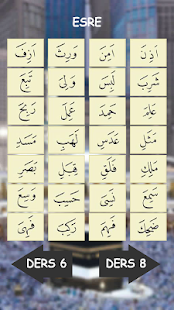 ESRE
اَذِنَ اَمِنَ وَرِثَ اَزِفَ
شَرِبَ لَبِسَ وَلِىَ تَبِعَ
عَلِمَ حَمِدَ عَمِلَ رَبِحَ
مَثَلِ عَدَسِ لَهَبِ مَسَدِ
مَلِكِ فَلَقِ قِبَلِ بَصَرِ
سَمِعَ نَسِىَ حَسِبَ وَسِعَ
ضَحِكَ فَهِمَ رَكِبَ فَهِىَ
DERS 6 DERS 8